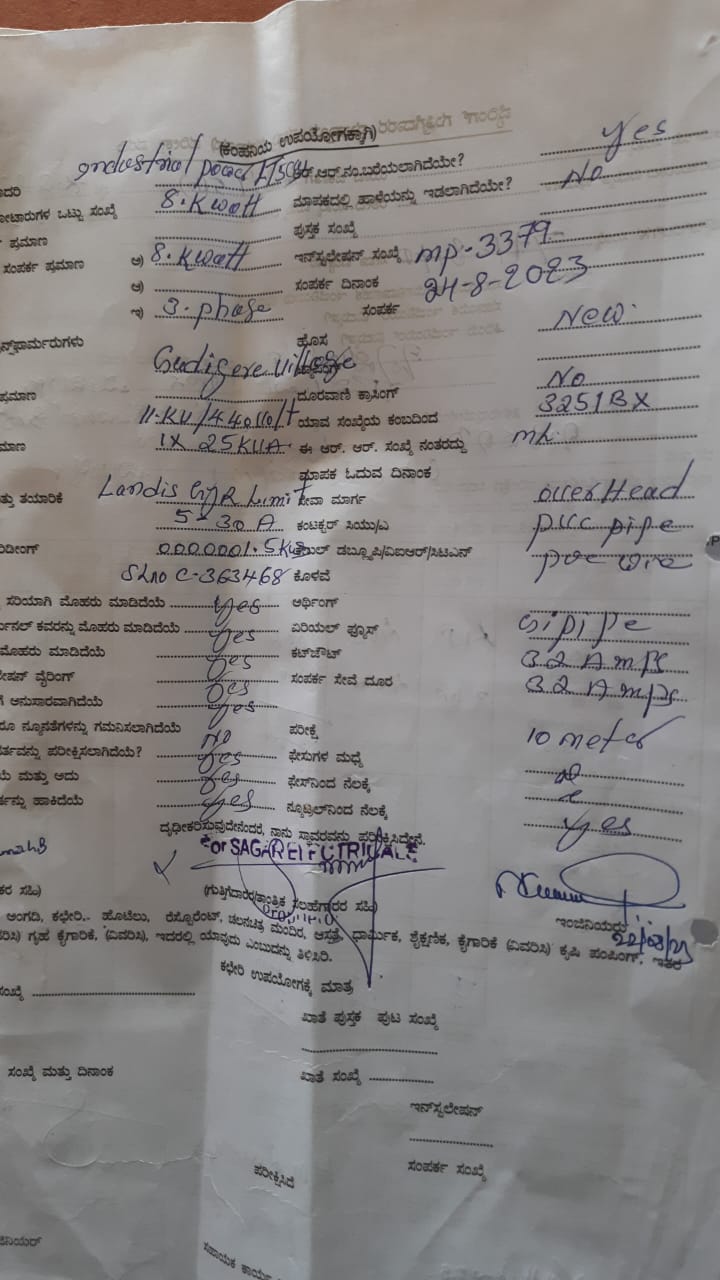 (ಕಂಪನಿಯ ಉಪಯೋಗಕ್ಕಾಗಿ)
Industrial power ಆರ್.ಆರ್.ನಂ.ಬರೆಯಲಾಗಿದೆಯೇ? Yes
8. Kwatt ಮಾಪಕದಲ್ಲಿ ಹಾಳೆಯನ್ನು ಇಡಲಾಗಿದೆಯೇ? No
ೋಟಾರುಗಳ ಒಟ್ಟು ಸಂಖ್ಯೆ
ಪ್ರಮಾಣ ಪುಸ್ತಕ ಸಂಖ್ಯೆ
ಸಂಪರ್ಕ ಪ್ರಮಾಣ ಅ) 8. Kwatt ಇನ್‌ಸ್ಟಲೇಷನ್ ಸಂಖ್ಯೆ mp-3379
ಆ) ಸಂಪರ್ಕ ದಿನಾಂಕ 24-8-2023
ಇ) 3. phase ಸಂಪರ್ಕ
ನ್ಸ್‌ಫಾರ್ಮರುಗಳು ಹೊಸ New
Gudigere Village
ಪ್ರಮಾಣ ದೂರವಾಣಿ ಕ್ರಾಸಿಂಗ್ No
11.KV/440Volt ಯಾವ ಸಂಖ್ಯೆಯ ಕಂಬದಿಂದ 3251BX
ಮಾಣ 1X 25KVA ಈ ಆರ್. ಆರ್. ಸಂಖ್ಯೆ ನಂತರದ್ದು
ಮಾಪಕ ಓದುವ ದಿನಾಂಕ
ತ್ತು ತಯಾರಿಕೆ Landis Gyr Limit ಸೇವಾ ಮಾರ್ಗ over Head
5-30 A ಕಂಟಕ್ಟರ್ ಸಿಯು/ಎ pvc pipe
ರಿಡೀಂಗ್ 0000001.5 ಡಬ್ಲ್ಯೂಪಿ/ವಿಐಆರ್/ಸಿಟಿಎನ್ pvc wire
Slno C-363468 ಕೊಳವೆ
ಸರಿಯಾಗಿ ಮೊಹರು ಮಾಡಿದೆಯೆ Yes ಅರ್ಥಿಂಗ್ Gi pipe
ರ್ಮಿನಲ್ ಕವರನ್ನು ಮೊಹರು ಮಾಡಿದೆಯೆ Yes ಏರಿಯಲ್ ಫ್ಯೂಸ್ 32 Amps
ಮೊಹರು ಮಾಡಿದೆಯೆ Yes ಕಟ್‌ಔಟ್ 32 Amps
ೇಷನ್ ವೈರಿಂಗ್ Yes ಸಂಪರ್ಕ ಸೇವೆ ದೂರ
ಗೆ ಅನುಸಾರವಾಗಿದೆಯೆ Yes
ರೂ ನ್ಯೂನತೆಗಳನ್ನು ಗಮನಿಸಲಾಗಿದೆಯೆ No ಪರೀಕ್ಷೆ 10 meter
ರ್ತವನ್ನು ಪರೀಕ್ಷಿಸಲಾಗಿದೆಯೆ? Yes ಫೇಸುಗಳ ಮಧ್ಯೆ
ಯೆ ಮತ್ತು ಅದು Yes ಫೇಸ್‌ನಿಂದ ನೆಲಕ್ಕೆ
ನ್ನು ಹಾಕಿದೆಯೆ Yes ನ್ಯೂಟ್ರಲ್‌ನಿಂದ ನೆಲಕ್ಕೆ Yes
ದೃಢೀಕರಿಸುವುದೇನೆಂದರೆ, ನಾನು ಸ್ಥಾವರವನ್ನು ಪರೀಕ್ಷಿಸಿದ್ದೇನೆ.
For SAGAR ELECTRICALS
ಕರ ಸಹಿ) (ಗುತ್ತಿಗೆದಾರರ/ತಾಂತ್ರಿಕ ಸಲಹೆಗಾರರ ಸಹಿ) ಇಂಜಿನಿಯರು
ಅಂಗಡಿ, ಕಛೇರಿ,- ಹೊಟೆಲು, ರೆಸ್ಟೊರೆಂಟ್, ಚಲನಚಿತ್ರ ಮಂದಿರ, ಆಸ್ಪತ್ರೆ, ಧಾರ್ಮಿಕ, ಶೈಕ್ಷಣಿಕ, ಕೈಗಾರಿಕೆ (ವಿವರಿಸಿ) ಕೃಷಿ ಪಂಪಿಂಗ್, ಇತರ
ರಿಸಿ) ಗೃಹ ಕೈಗಾರಿಕೆ, (ವಿವರಿಸಿ), ಇದರಲ್ಲಿ ಯಾವುದು ಎಂಬುದನ್ನು ತಿಳಿಸಿರಿ.
ಕಛೇರಿ ಉಪಯೋಗಕ್ಕೆ ಮಾತ್ರ
ಸಂಖ್ಯೆ ಖಾತೆ ಪುಸ್ತಕ ಪುಟ ಸಂಖ್ಯೆ
ಸಂಖ್ಯೆ ಮತ್ತು ದಿನಾಂಕ ಖಾತೆ ಸಂಖ್ಯೆ
ಇನ್‌ಸ್ಟಲೇಷನ್
ಪರೀಕ್ಷಿಸಿದೆ ಸಂಪರ್ಕ ಸಂಖ್ಯೆ
ಜಿನಿಯರ್ ಸಹಾಯಕ ಕಾರ್ಯ